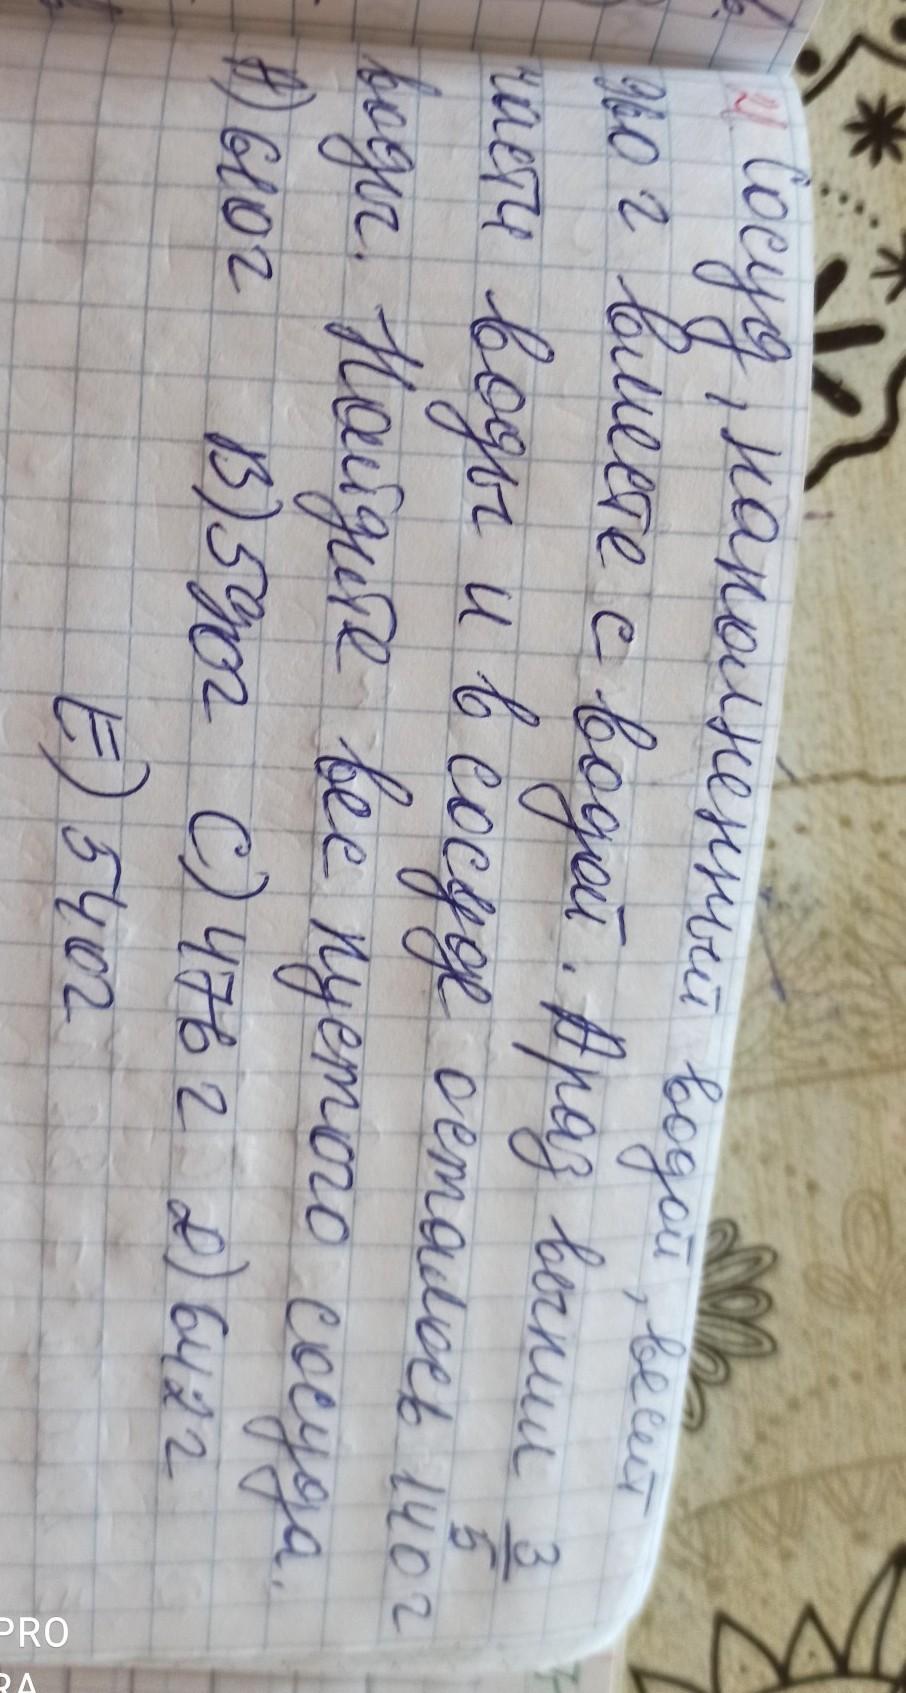 2) Сосуд, наполненный водой, весит
960 г вместе с водой. Араз выпил 3/5
части воды и в сосуде осталось 140 г
воды. Найдите вес пустого сосуда.
A) 610 г B) 590 г C) 476 г D) 642 г
E) 540 г
PRO